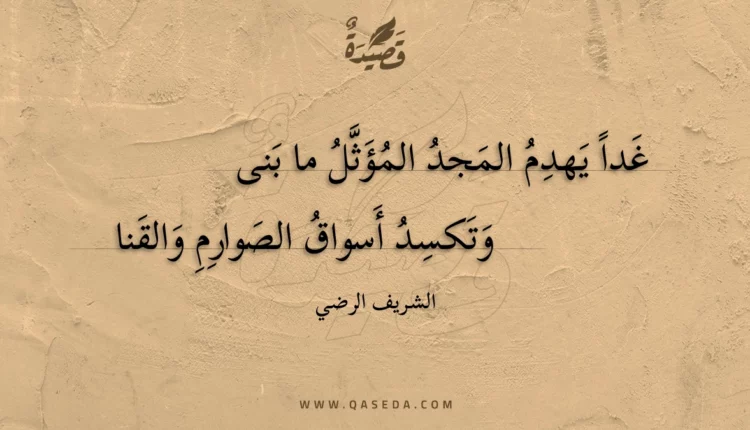 قَصِيْدَةٌ
غَداً يَهدِمُ المَجدُ المُؤَثَّلُ ما بَنى
وَتَكسِدُ أَسواقُ الصَوارِمِ وَالقَنا
الشريف الرضي
WWW.QASEDA.COM